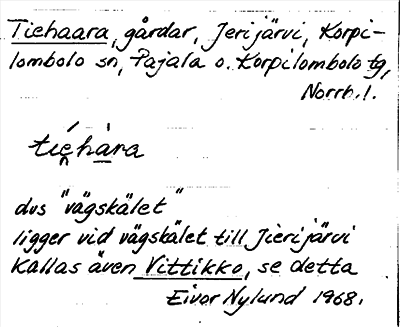 Tiehaara, gårdar, Jerijärvi, Korpi-
lombolo sn, Pajala o. Korpilombolo tg,
Norrb. l.
tiẹ́hàra
dvs "vägskälet"
ligger vid vägskälet till Jierijärvi
Kallas även Vittikko, se detta
Eivor Nylund 1968.